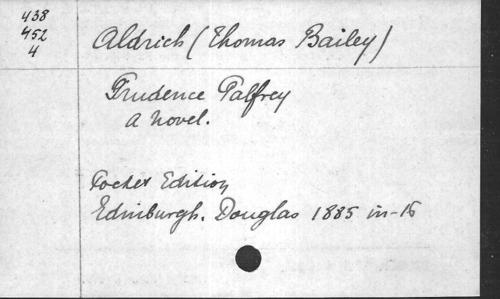 438
452
4
Aldrich (Thomas Bailey)
Prudence Palfrey
a novel.
Pocket Edition
Edinburgh. Douglas 1885 in-16